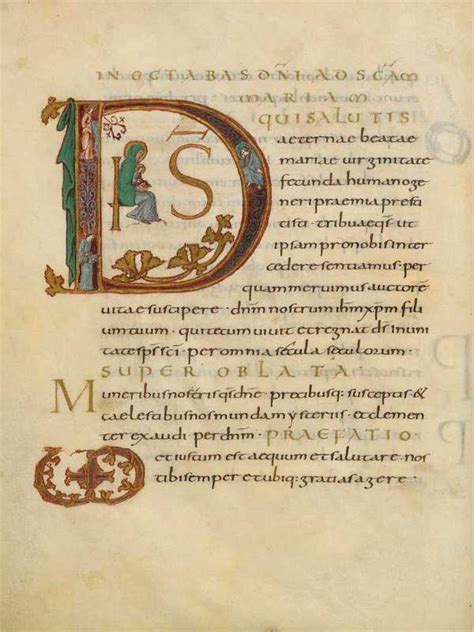 IN OCTABAS DÑI AD SCÃM
MARIAM
DS QUI SALUTIS
aeternae beatae
mariae uirginitate
fecunda humano ge
neri praemia praesti
tisti · tribuae qs̄ ut
ipsam pro nobis inter
cedere sentiamus · per
quam meruimus auctorē
uitae suscipere · dn̄m nostrum ih̄m xp̄m fili
um tuum · qui tecum uiuit et regnat dś in uni
tate sp̄s sc̄i · per omnia sęcula sęculorum ·
SUPER OBLATA
Muneribus nr̄is qs̄ dn̄e precibusq: susceptis &
caelestibus nos munda mysteriis et clemen
ter exaudi · per dn̄m · PRAEFATIO
et iustum est aequum et salutare · nos
tibi semper et ubiq: gratias agere ·